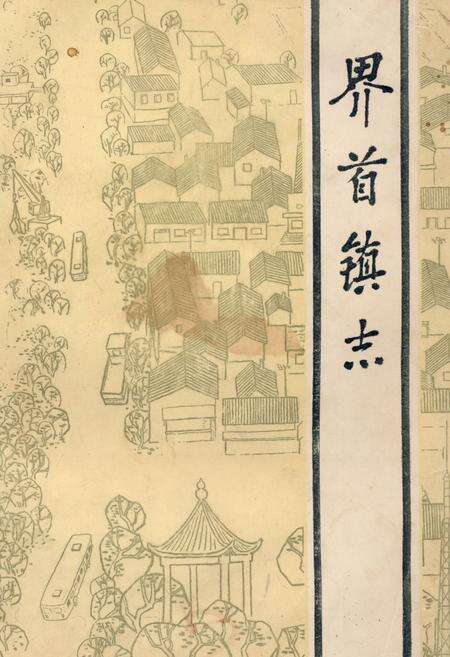 界首镇志